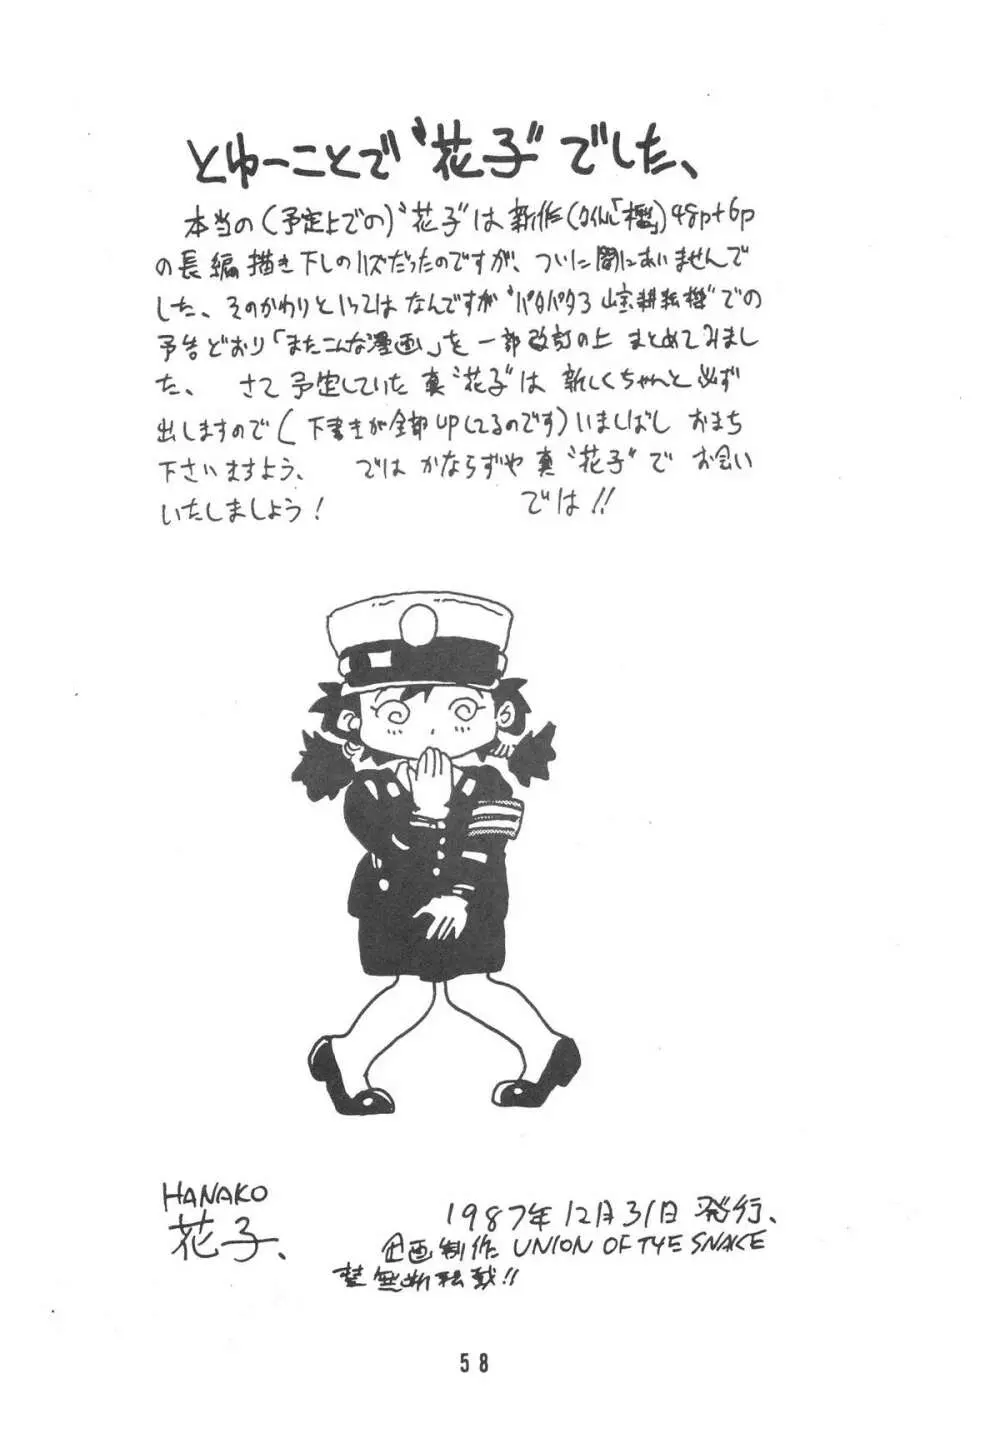 とゆーことで〝花子〟でした、
本当の(予定上での)〝花子〟は新作(タイトル「檻」)48p+6p
の長編描き下しのハズだったのですが、ついに間にあいませんで
した、そのかわりといってはなんですが〝パタパタ3 山宗耕耘機〟での
予告どおり「またこんな漫画」を一部改訂の上 まとめてみまし
た、 さて 予定していた 真〝花子〟は 新しくちゃんと必ず
出しますので(下書きが全部upしてるのです)いましばし おまち
下さいますよう、 では かならずや 真〝花子〟で お会い
いたしましょう! では!!
HANAKO
花子、
1987年12月31日発行、
企画制作 UNION OF THE SNAKE
禁無断転載!!
58